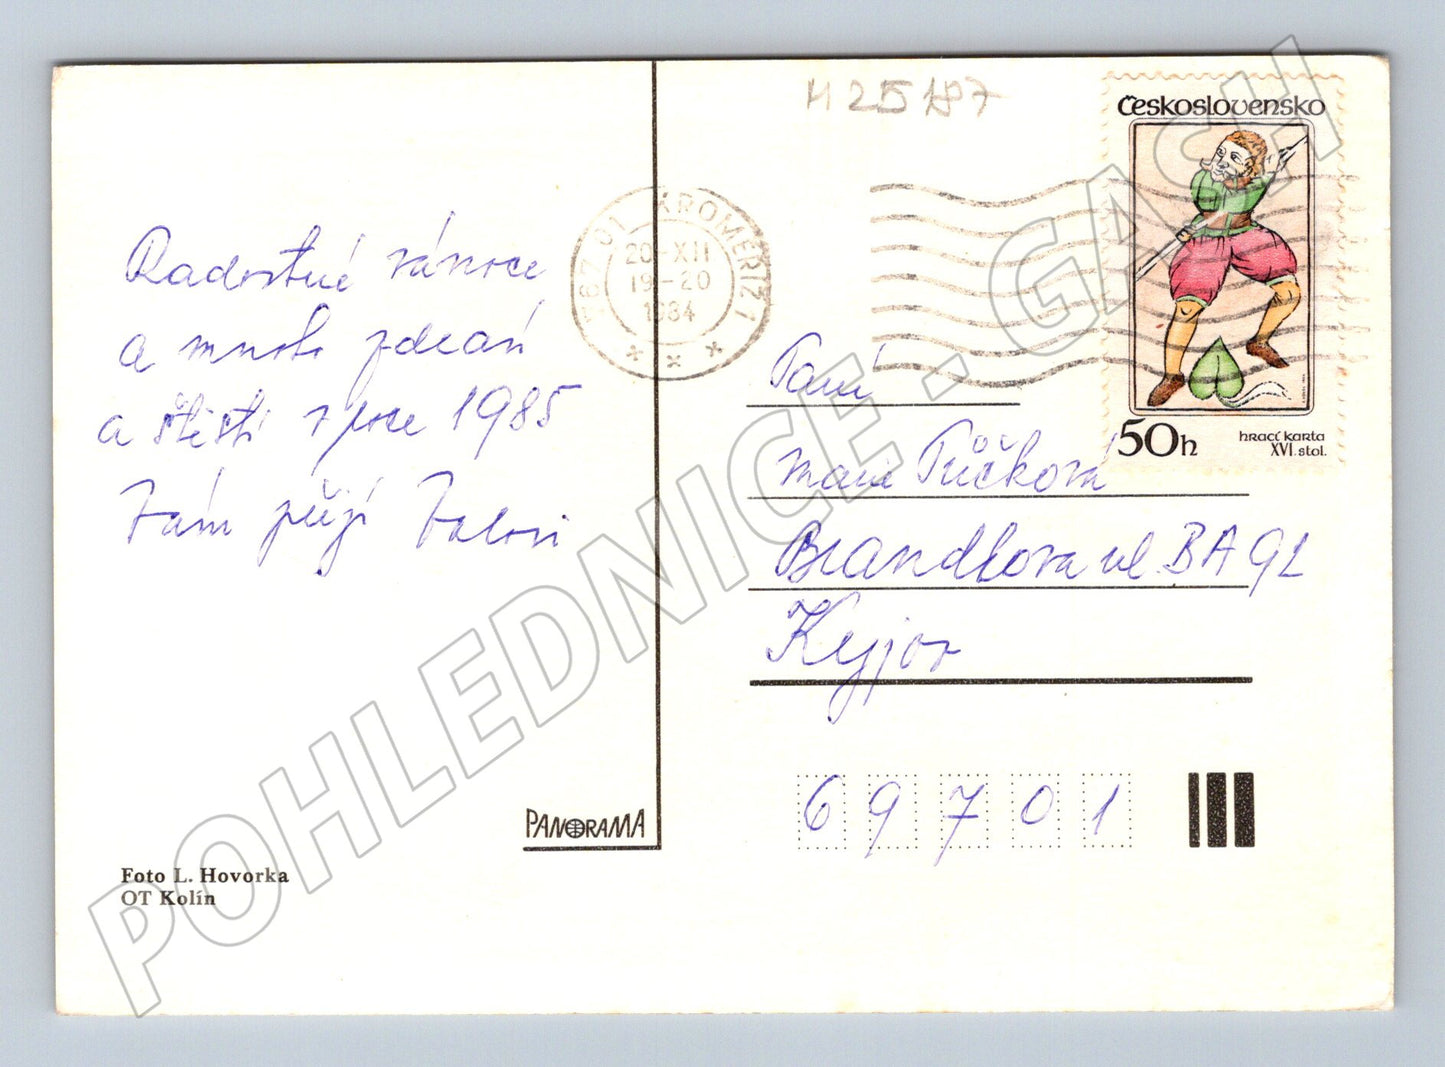 Radostné vánoce
a mnoho zdraví
a štěstí v roce 1985
Vám přejí
Foto L. Hovorka
OT Kolín
PANORAMA
767 01 KROMĚŘÍŽ 1
20.-XII
19-20
1984
H 25 187
Československo
50h
hrací karta
XVI. stol.
Paní
Marie Půčková
Brandlova ul BA 92
Kyjov
69701
POHLEDNICE . GASH